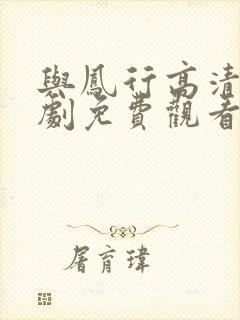 與鳳行高清
劇免費觀看
屠育瑋